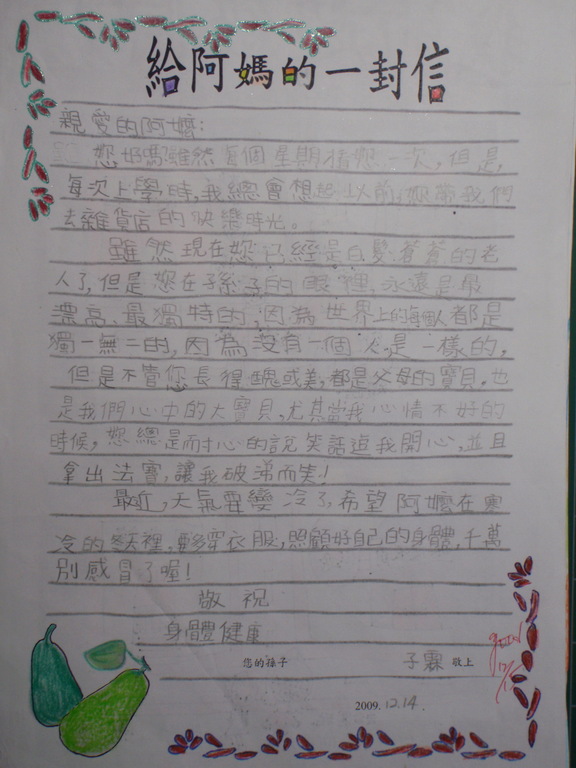 給阿媽的一封信
親愛的阿嬤:
您好嗎雖然每個星期看您一次,但是,
每次上學時,我總會想起以前,您帶我們
去雜貨店的快樂時光。
雖然現在您已經是白髮蒼蒼的老
人了,但是您在子孫子的眼裡,永遠是最
漂亮、最獨特的,因為世界上的每個人都是
獨一無二的,因為沒有一個人是一樣的,
但是不管您長得醜或美,都是父母的寶貝,也
是我們心中的大寶貝,尤其當我心情不好的
時候,您總是耐心的說笑話逗我開心,並且
拿出法寶,讓我破涕而笑!
最近,天氣要變冷了,希望阿嬤在寒
冷的冬天裡,要多穿衣服,照顧好自己的身體,千萬
別感冒了喔!
敬祝
身體健康
您的孫子 子霖 敬上
2009. 12.14